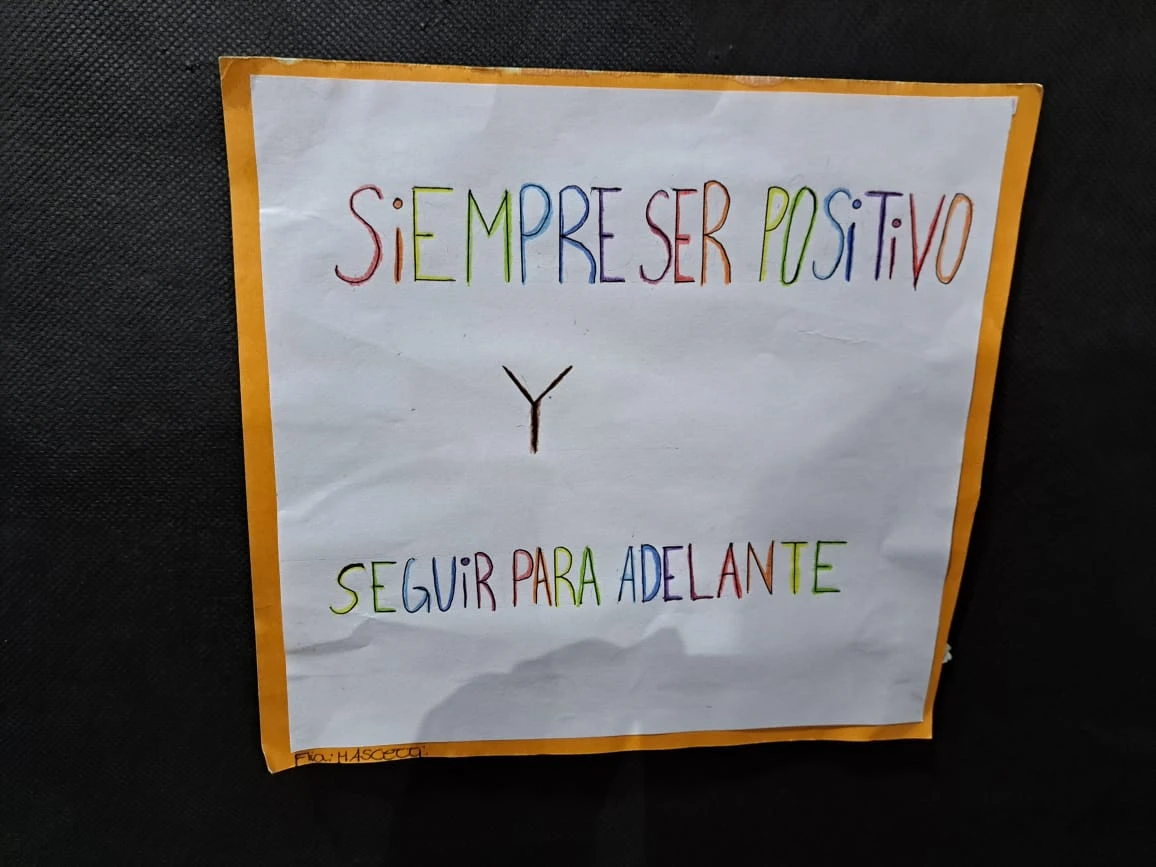 SiEMPRE SER POSiTiVO
Y
SEGUiR PARA ADELANTE
Flia: